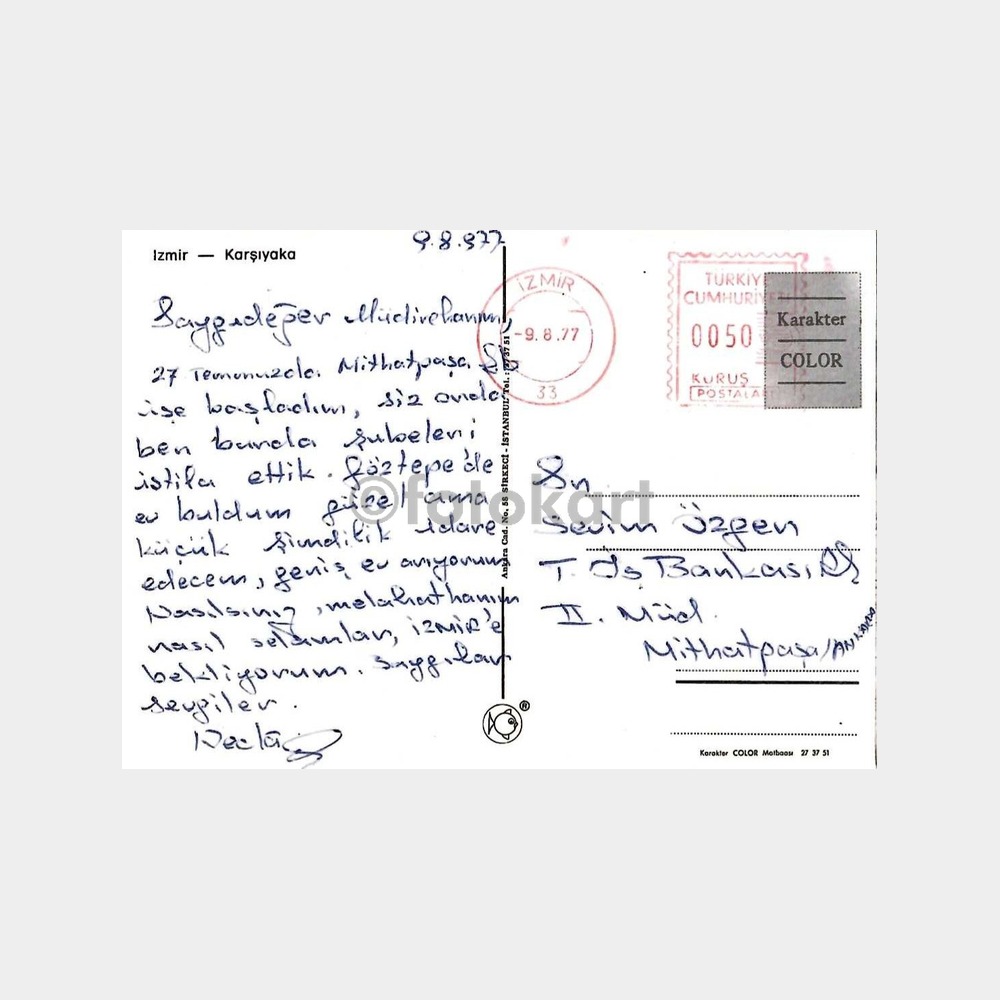 9.8.977
Izmir — Karşıyaka
Saygıdeğer Müdirehanım,
27 Temmuzda Mithatpaşa Şb
işe başladım, siz orda
ben burda şubeleri
istila ettik. Göztepe'de
ev buldum güzel ama
küçük şimdilik idare
edecem, geniş ev arıyorum
Nasılsınız, melahathanım
nasıl selamlar, İZMİR'e
bekliyorum. Saygılar
sevgiler.
Neclâ
Ankara Cad. No. 58 SİRKECİ - İSTANBUL Tel. : 27 37 51
®
İZMİR
-9.8.77
33
TÜRKİYE
CUMHURİYETİ
0050
KURUŞ
POSTALARI
Karakter
COLOR
Sn
Sevim Özgen
T. İş Bankası Şb
II. Müd.
Mithatpaşa/ANKARA
Karakter COLOR Matbaası 27 37 51
©fotokart